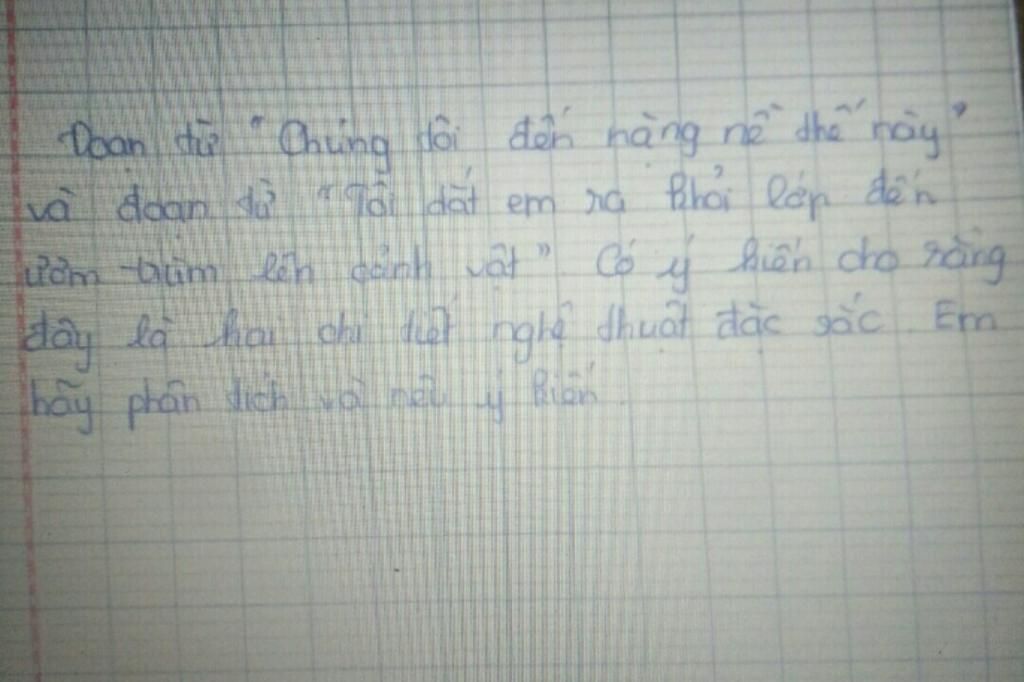 Đoạn từ "Chúng tôi đến nàng nề thế này"
và đoạn từ "Tôi dắt em ra khỏi lớp đến
ươm trùm lên cảnh vật" Có ý kiến cho rằng
đây là hai chi tiết nghệ thuật đặc sắc. Em
hãy phân tích và nêu ý kiến.